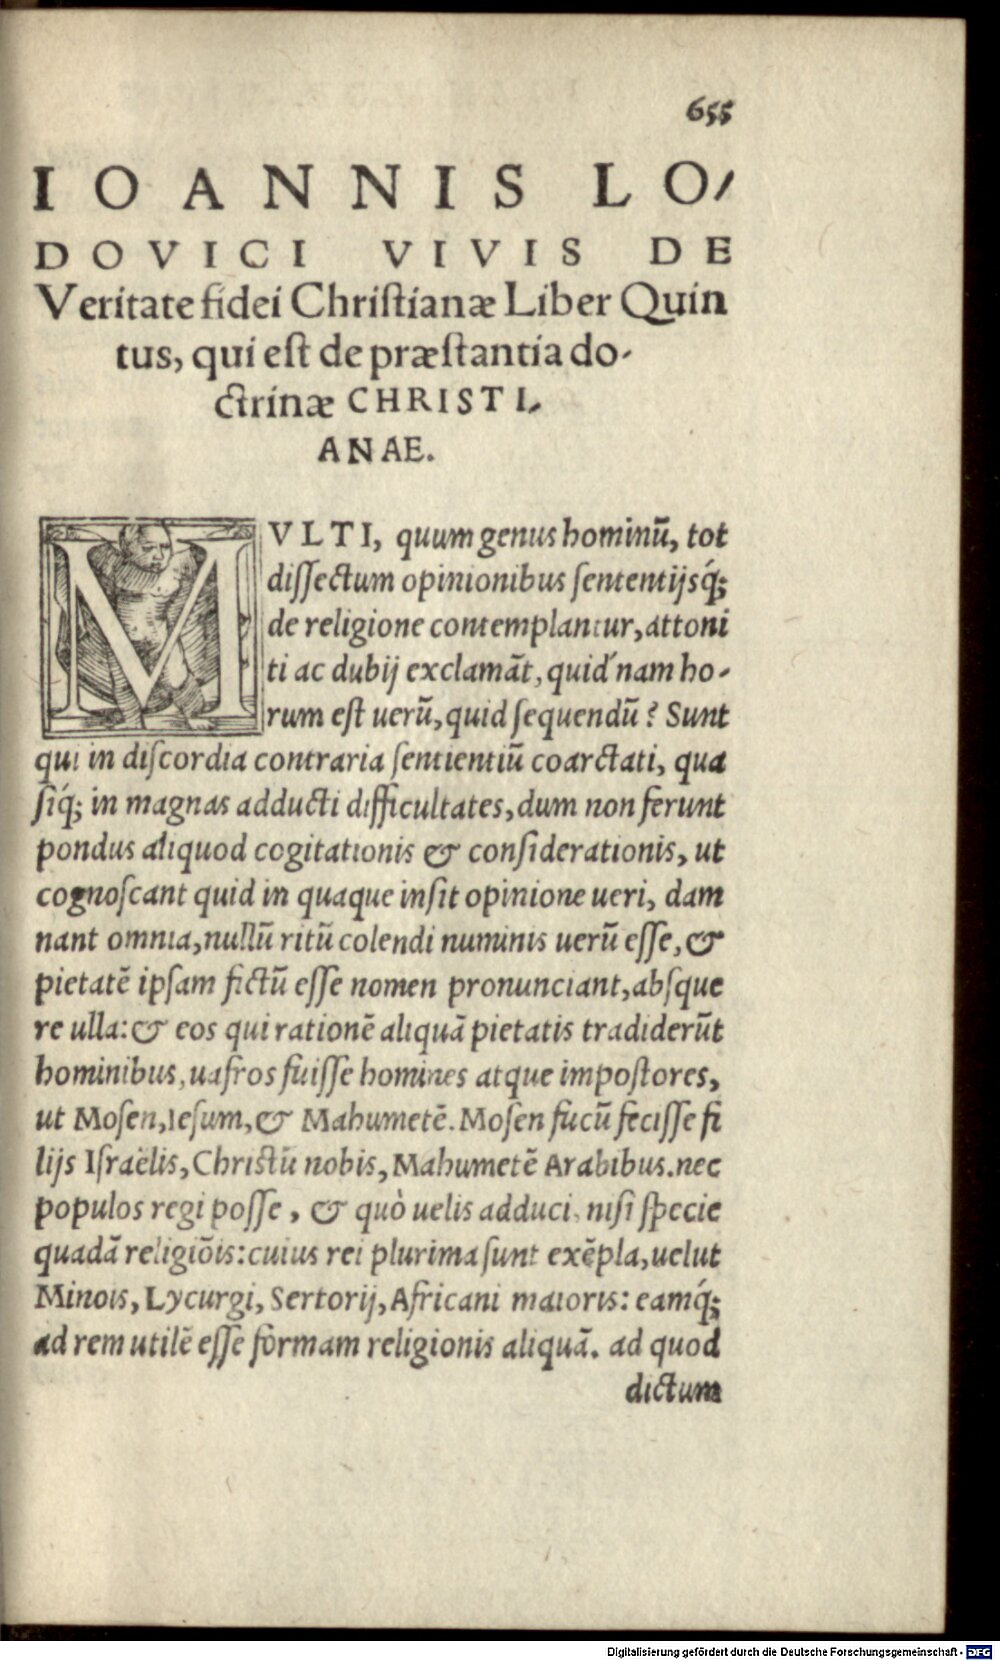 655
IOANNIS LO/
DOVICI VIVIS DE
Veritate fidei Christianæ Liber Quin
tus, qui est de præstantia do-
ctrinæ CHRISTI,
ANAE.
MVLTI, quum genus hominũ, tot
dissectum opinionibus sententijsq́;
de religione contemplantur, attoni
ti ac dubij exclamãt, quid nam ho-
rum est uerũ, quid sequendũ? Sunt
qui in discordia contraria sentientiũ coarctati, qua
siq́; in magnas adducti difficultates, dum non ferunt
pondus aliquod cogitationis & considerationis, ut
cognoscant quid in quaque insit opinione ueri, dam
nant omnia, nullũ ritũ colendi numinis uerũ esse, &
pietatẽ ipsam fictũ esse nomen pronunciant, absque
re ulla: & eos qui rationẽ aliquã pietatis tradiderũt
hominibus, uafros fuisse homines atque impostores,
ut Mosen, Iesum, & Mahumetẽ. Mosen fucũ fecisse fi
lijs Israëlis, Christũ nobis, Mahumetẽ Arabibus. nec
populos regi posse, & quò uelis adduci, nisi specie
quadã religiõis: cuius rei plurima sunt exẽpla, uelut
Minois, Lycurgi, Sertorij, Africani maioris: eamq́;
ad rem utilẽ esse formam religionis aliquã. ad quod
dictum
Digitalisierung gefördert durch die Deutsche Forschungsgemeinschaft - DFG